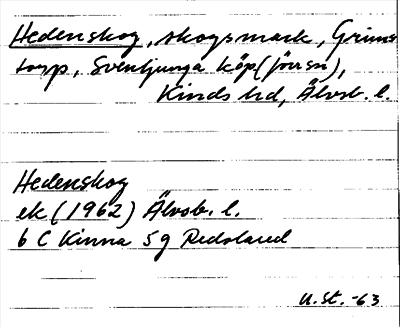 Hedenskog, skogsmark, Grims
torp, Svenljunga köp (förrsn),
Kinds hd, Älvsb. l.
Hedenskog
ek (1962) Älvsb. l.
6 C Kinna 5 g Redslared
U.St. -63